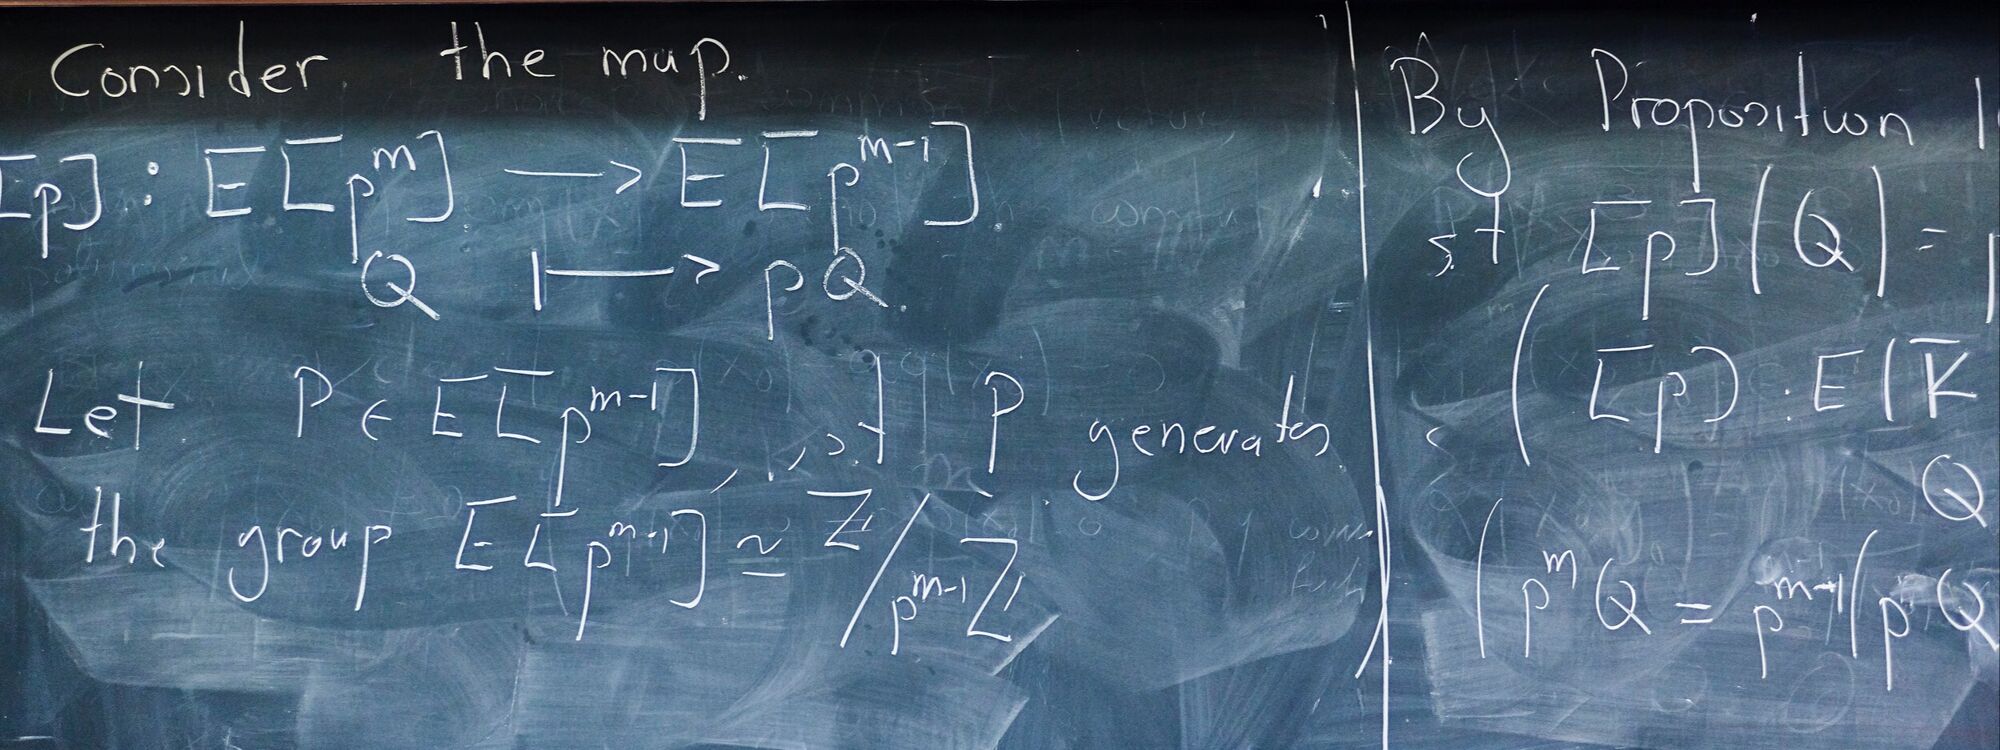 Consider the map.
[p] : E[p^m] → E[p^{m-1}]
Q ↦ pQ
Let P ∈ E[p^{m-1}], s.t P generates
the group E[p^{m-1}] ≃ Z/p^{m-1}Z
By Proposition 1
s.t [p](Q) =
([p] : E(K̄
Q
(p^m Q = p^{m-1}(pQ